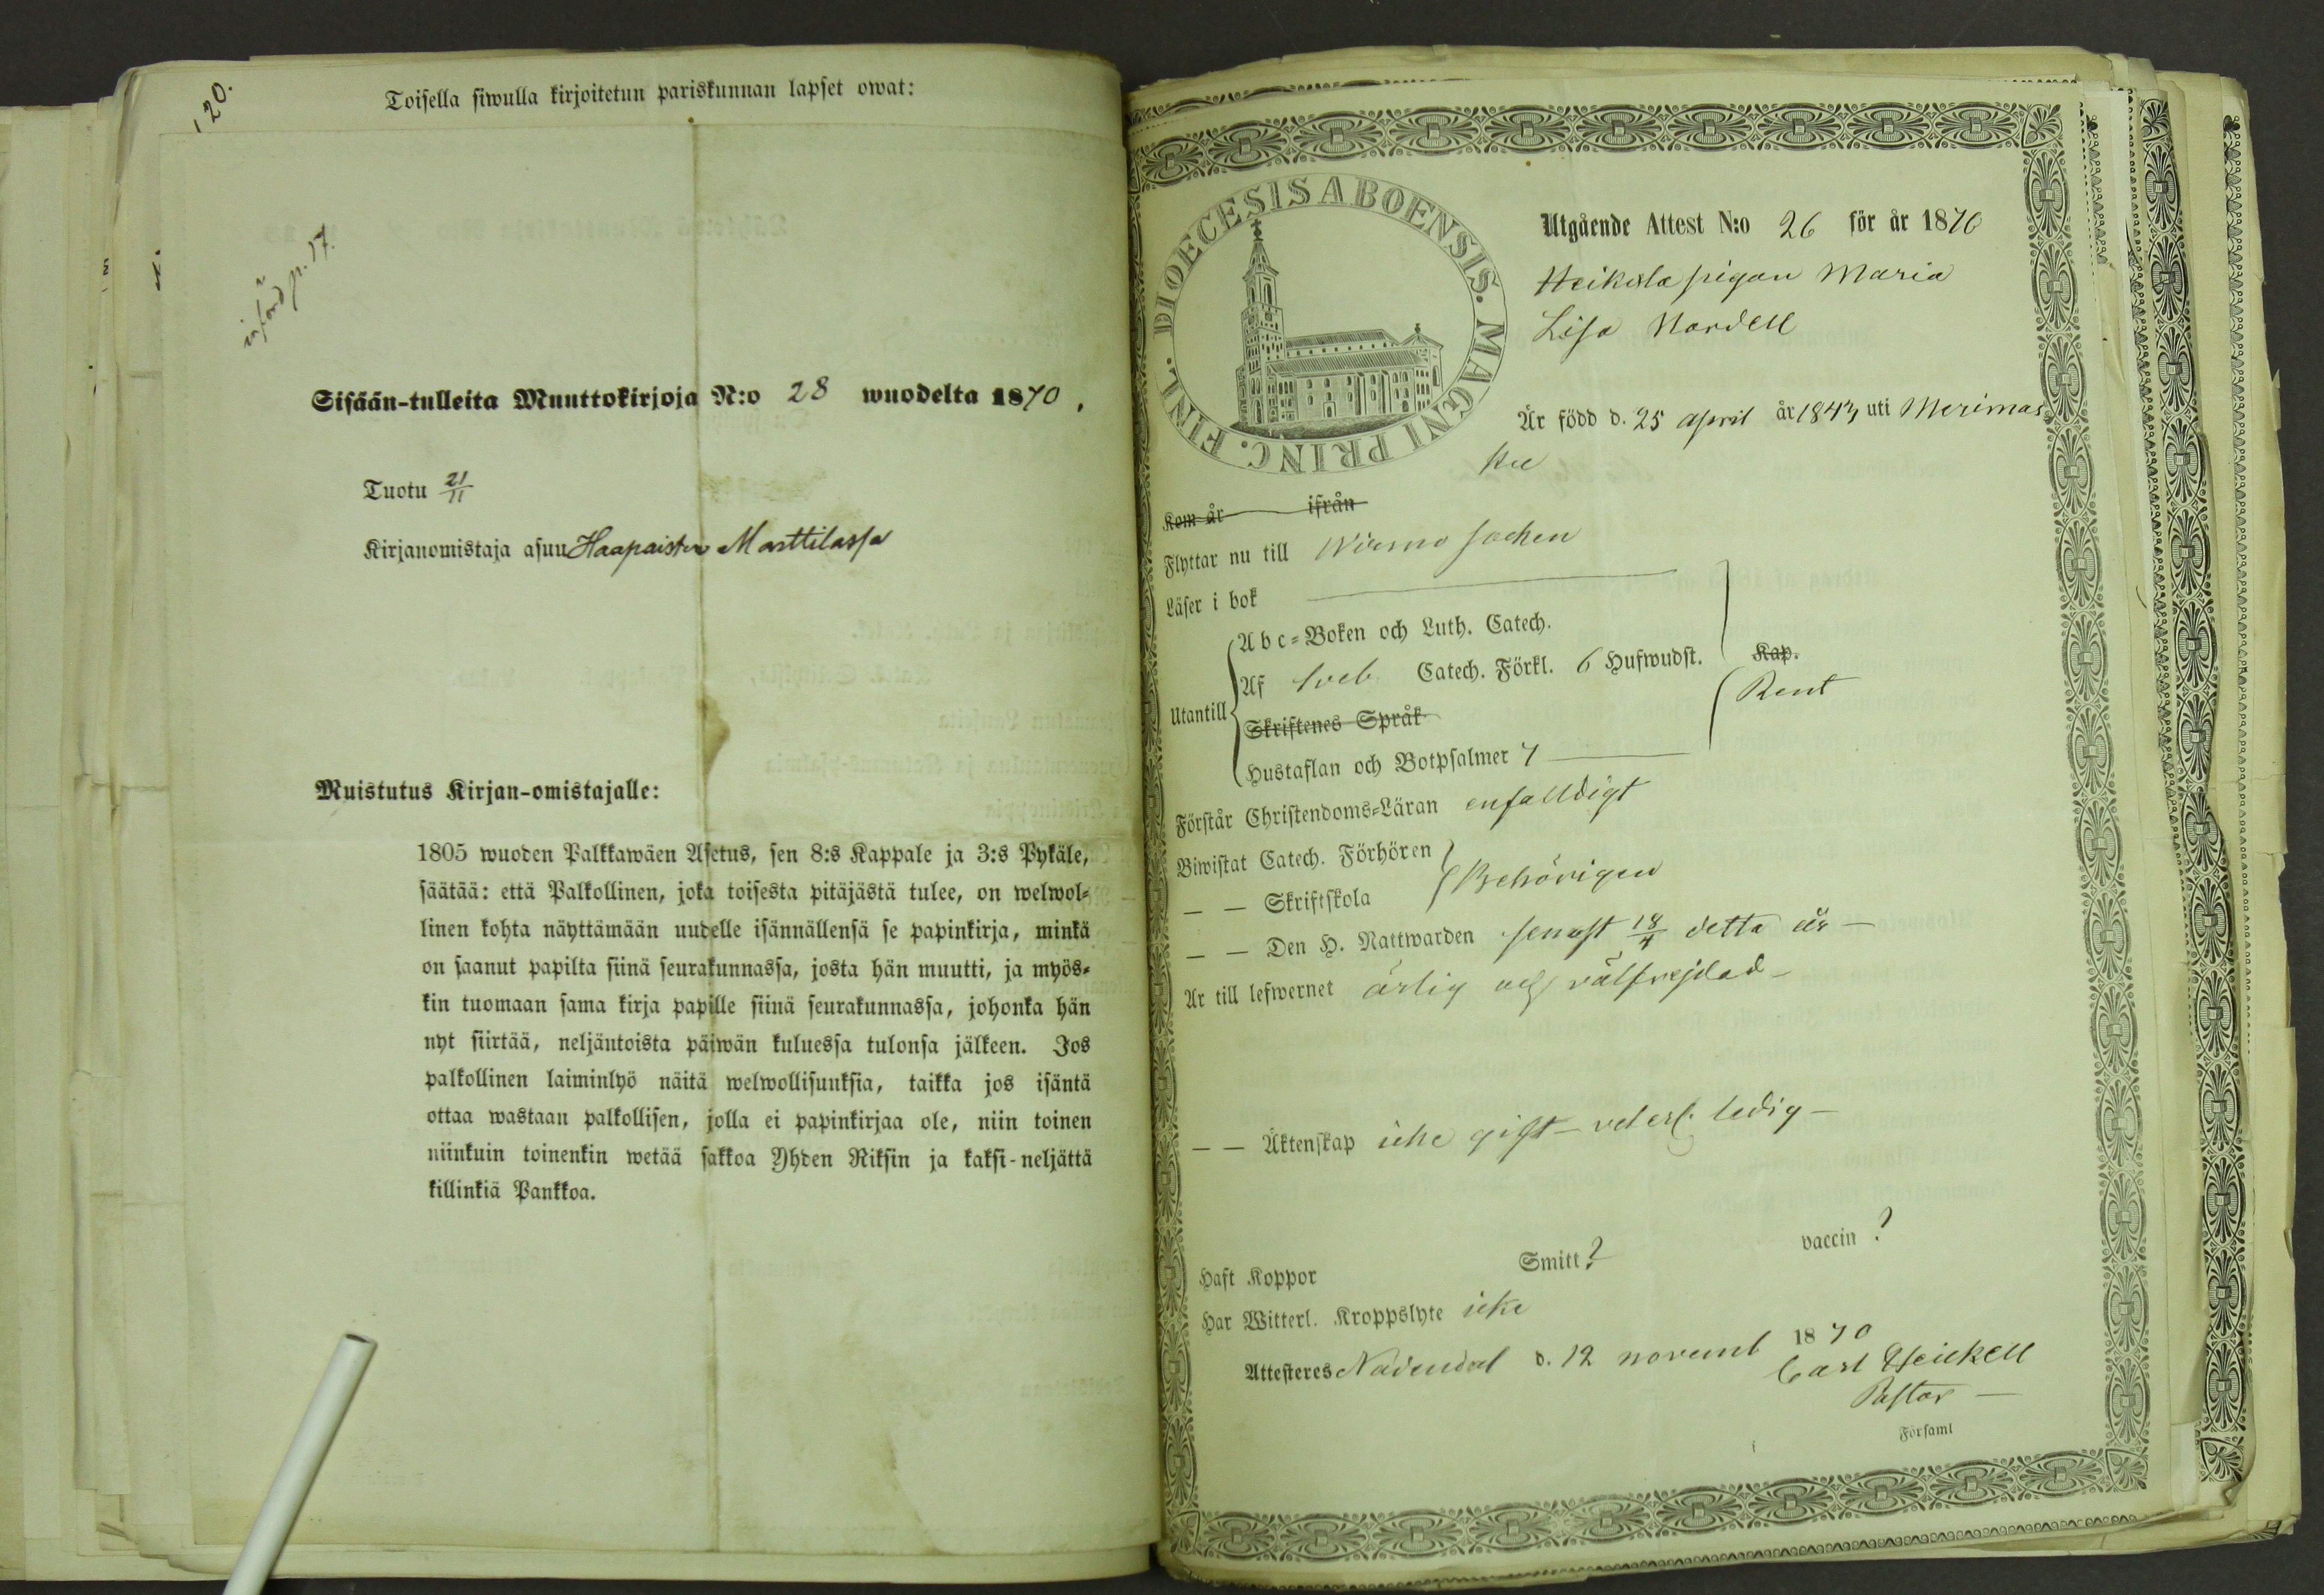 120.
införd p. 17.
Toisella siwulla kirjoitetun pariskunnan lapset owat:
Sisään-tulleita Muuttokirjoja N:o 28 wuodelta 1870.
Tuotu 21/11
Kirjanomistaja asuu Haapaisten Marttilassa
Muistutus Kirjan-omistajalle:
1805 wuoden Palkkawäen Asetus, sen 8:s Kappale ja 3:s Pykäle,
säätää: että Palkollinen, joka toisesta pitäjästä tulee, on welwol-
linen kohta näyttämään uudelle isännällensä se papinkirja, minkä
on saanut papilta siinä seurakunnassa, josta hän muutti, ja myös-
kin tuomaan sama kirja papille siinä seurakunnassa, johonka hän
nyt siirtää, neljäntoista päiwän kuluessa tulonsa jälkeen. Jos
palkollinen laiminlyö näitä welwollisuuksia, taikka jos isäntä
ottaa wastaan palkollisen, jolla ei papinkirjaa ole, niin toinen
niinkuin toinenkin wetää sakkoa Yhden Riksin ja kaksi-neljättä
killinkiä Pankkoa.
DIOECESIS ABOENSIS. MAGNI PRINC. FINL.
Utgående Attest N:o 26 för år 1870
Heikola pigan Maria
Lisa Nordell
Är född d. 25 april år 1843 uti Merimas
ku
Kom år ifrån
Flyttar nu till Wirmo socken
Läser i bok
Abc-Boken och Luth. Catech.
Af Sveb. Catech. Förkl. 6 Hufwudst. Kap.
Utantill Rent
Skriftenes Språk
Hustaflan och Botpsalmer 7
Förstår Christendoms-Läran enfalldigt
Biwistat Catech. Förhören
— — Skriftskola Behörigen
— — Den H. Nattwarden senast 18/4 detta år —
Är till lefwernet ärlig och välfrejdad —
— — Äktenskap icke gift — ledig —
Haft Koppor Smitt ? vaccin ?
Har Witterl. Kroppslyte icke
Attesteres Nådendal d. 12 novemb 1870
Carl Heickell
Pastor —
Församl